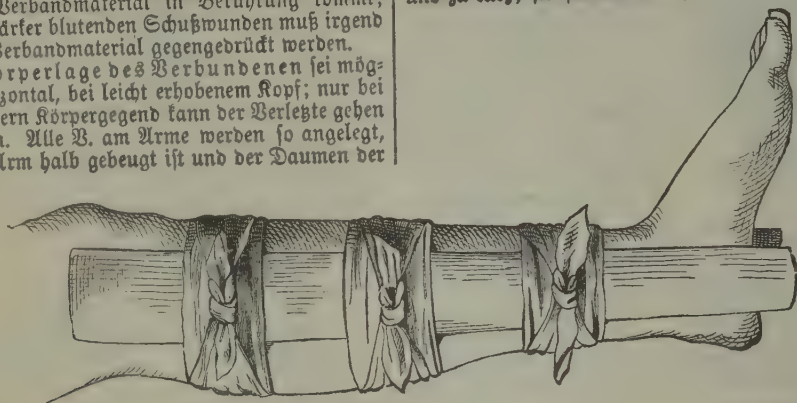 Verbandmaterial in Berührung kommt;
ärker blutenden Schußwunden muß irgend
Verbandmaterial gegengedrückt werden.
örperlage des Verbundenen sei mög-
zontal, bei leicht erhobenem Kopf; nur bei
ern Körpergegend kann der Verletzte gehen
n. Alle V. am Arme werden so angelegt,
Arm halb gebeugt ist und der Daumen der